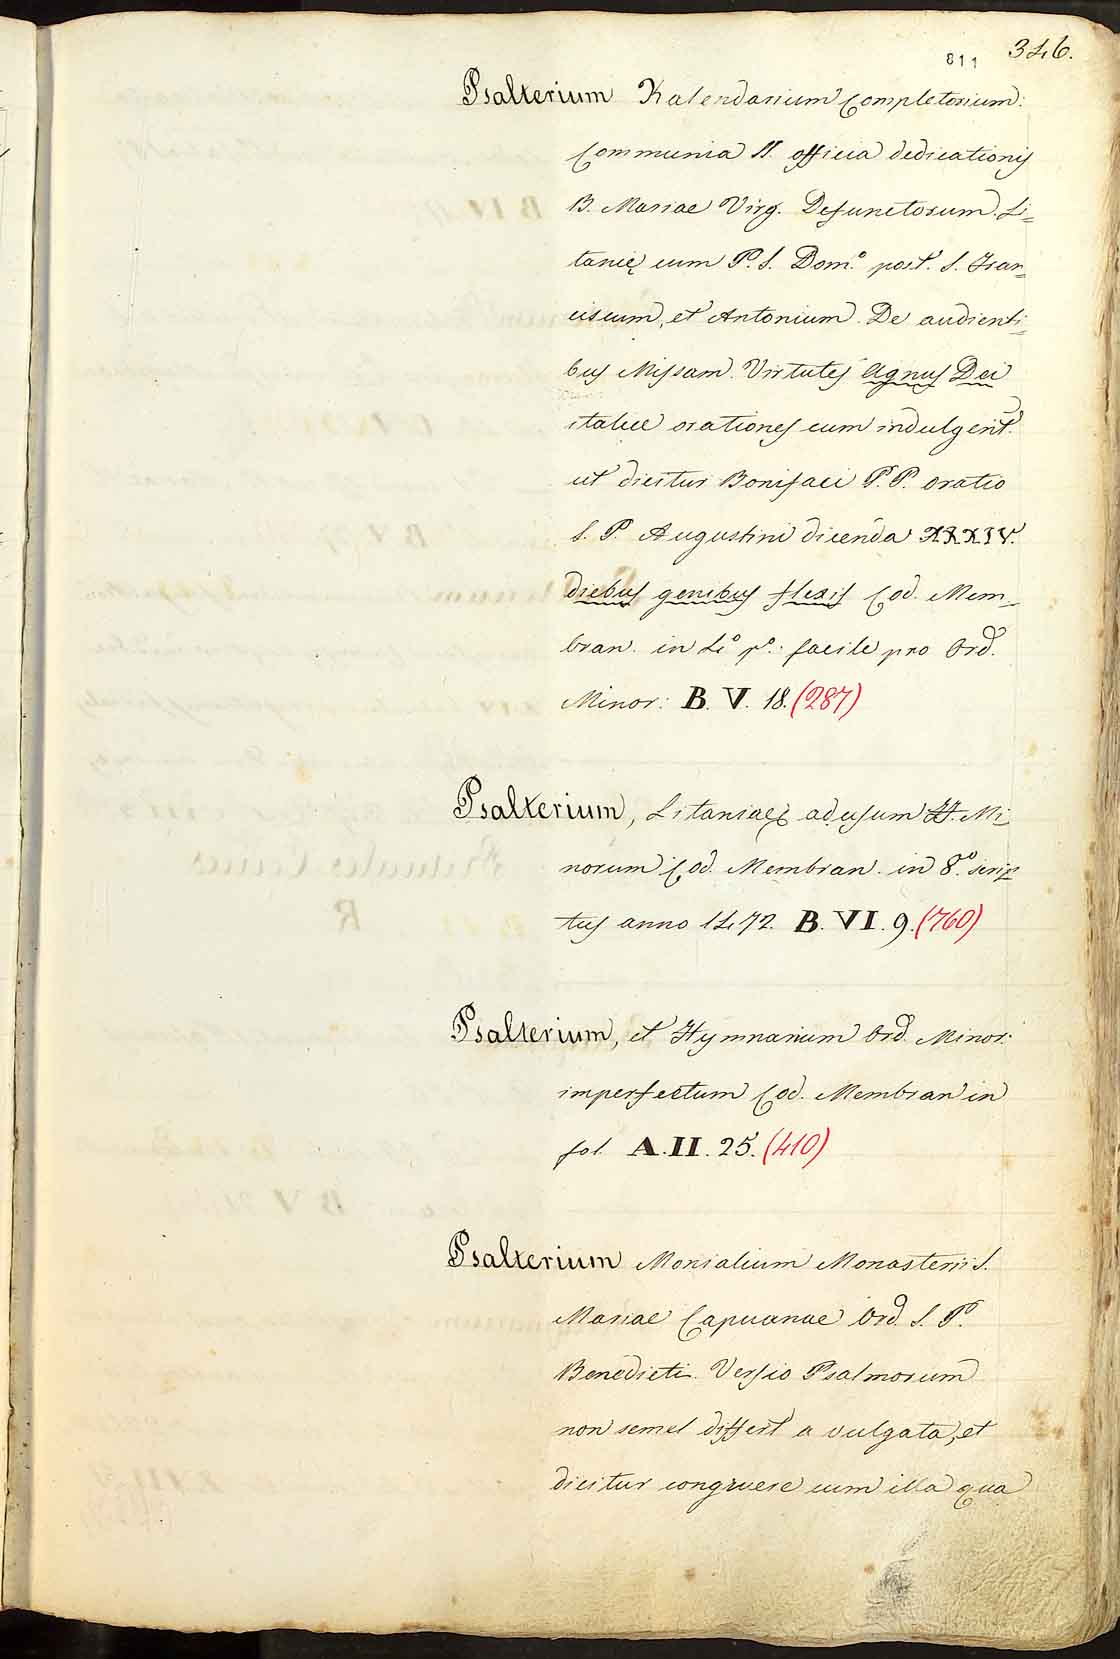 811 346.
Psalterium Kalendarium Completorium:
Communia SS. officia dedicationis
B. Mariae Virg. Defunctorum. Li=
tanię cum P. S. Dom.º post. S. Fran=
ciscum, et Antonium. De audienti=
bus Missam. Virtutes Agnus Dei
italice orationes cum indulgent.
ut dicitur Bonifaci P. P. oratio
S. P. Augustini dicenda XXXIV.
diebus genibus flexis Cod. Mem=
bran. in 4º pº: facile pro Ord.
Minor: B. V. 18. (287)
Psalterium, Litaniaeq ad usum FF. Mi=
norum Cod. Membran. in 8.º scrip=
tus anno 1472. B. VI. 9. (760)
Psalterium, et Hymnarium Ord. Minor:
imperfectum Cod. Membran in
fol. A. II. 25. (410)
Psalterium Monialium Monasterii S.
Mariae Capuanae Ord. S. P.
Benedicti. Versio Psalmorum
non semel differt a vulgata, et
dicitur congruere cum illa qua